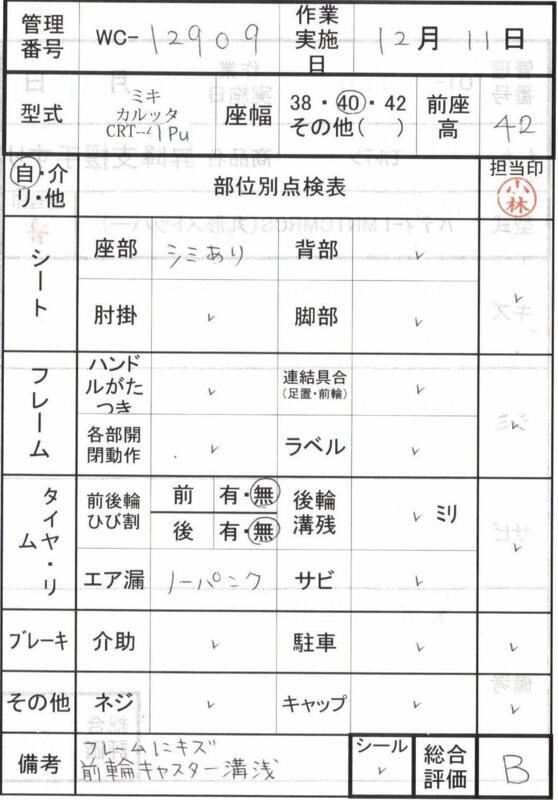 管理番号 WC-12909 作業実施日 12月11日
型式 ミキ カルッタ CRT--1Pu 座幅 38・40・42 その他( ) 前座高 42
自・介リ・他 部位別点検表 担当印 小林
シート 座部 シミあり 背部 ✓ ✓
肘掛 ✓ 脚部 ✓
フレーム ハンドルがたつき ✓ 連結具合(足置・前輪) ✓ ✓
各部開閉動作 ✓ ラベル ✓
タイヤ・リム 前後輪ひび割 前 有・無 後輪溝残 ✓ ミリ ✓
後 有・無
エア漏 ノーパンク サビ ✓
ブレーキ 介助 ✓ 駐車 ✓ ✓
その他 ネジ ✓ キャップ ✓ ✓
備考 フレームにキズ シール ✓ 総合評価 B
前輪キャスター溝浅